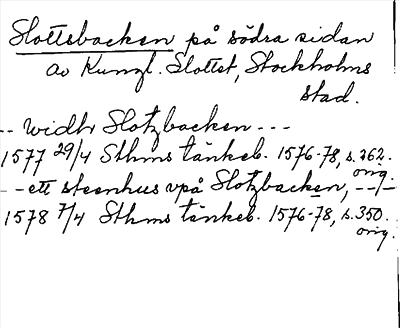 Slottsbacken på södra sidan
av Kungl. Slottet, Stockholms
stad.
-- widhr Slotzbacken ---
1577 29/4 Sthms tänkeb. 1576-78, s. 262.
orig.
--ett steenhus vpå Slotzbacken, --/--
1578 7/4 Sthms tänkeb. 1576-78, s. 350.
orig.